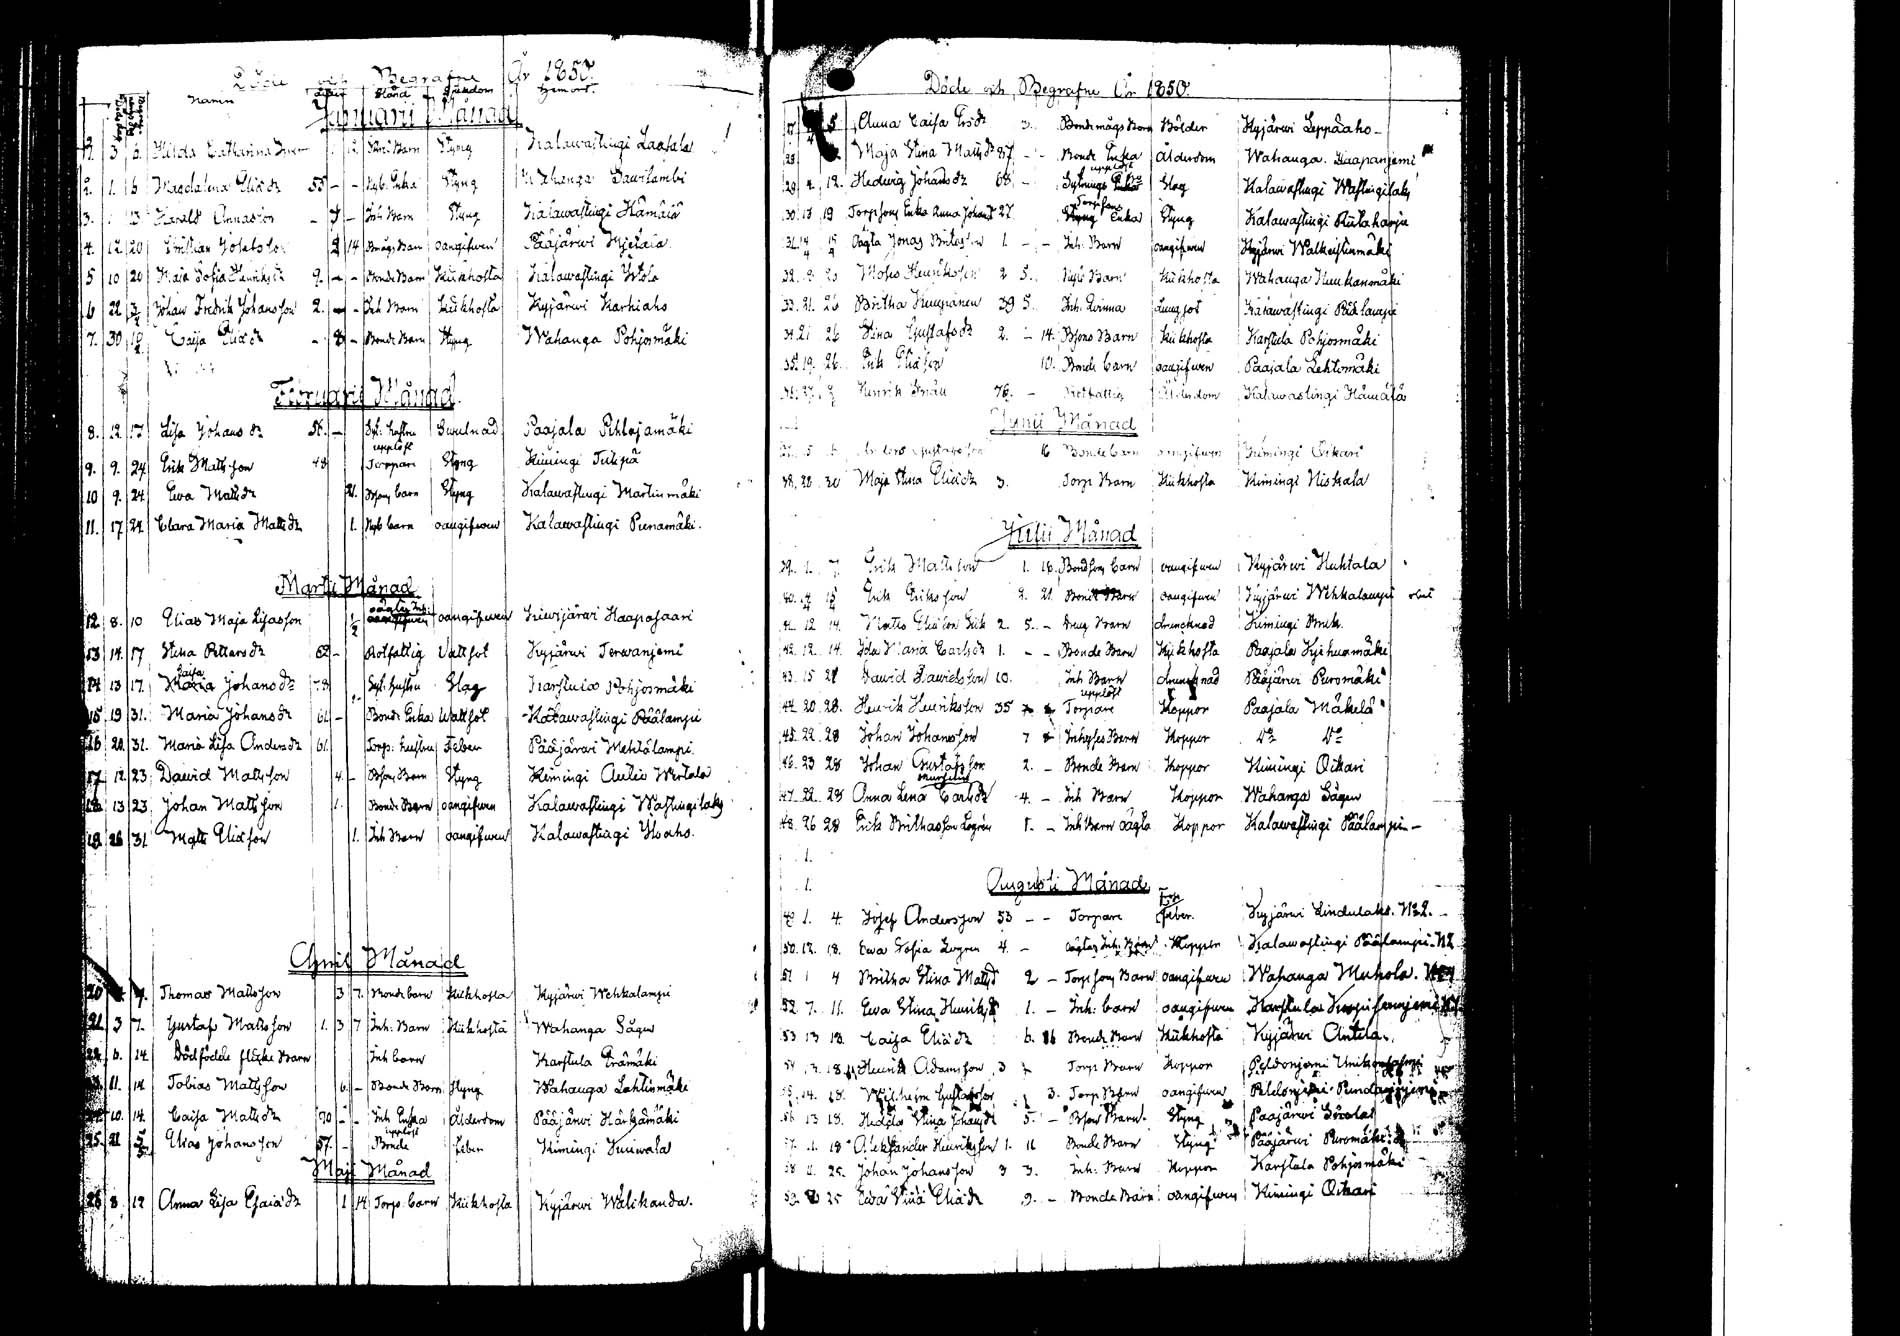 Döde och Begrafne År 1850.
Namn ålder Stånd Sjukdom Hemort.
Januarii Månad
3 6. Hilda Catharina 12. Barn Styng Kalawastingi Laatala
2. 1. 6 Magdalena Eliædr 55 - - Nyb. Enka Styng Wahanga Sawilambi
3. 13 Harald Annasson - 7 - Inh Barn Styng Kalawastingi Hämälä
4. 12 20 Christian Josefsson 2 14 Bmågs Barn oangifwen Pääjärwi
5 10 20 Maja Sofia Henriksdr 9. - - Bonde Barn Kikhosta Kalawastingi
6 22 3/2 Johan Fredrik Johansson 2. - - Inh Barn Kikhosta Kyjärwi Karhiaho
7. 30 10/2 Caisa Eliædr - 8 - Bonde Barn Styng Wahanga Pohjosmäki
Februarii Månad
8. 12 17 Lisa Johansdr 56. - hustru Swulnad Paajala Pihlajamäki
9. 9. 24 Erik Mattsson 48 Torpare Styng Kimingi Tulipä
10 9. 24 Ewa Mattsdr 21. Bsons barn Styng Kalawastingi Martinmäki
11. 17 24. Clara Maria Mattsdr 1. Nyb barn oangifwen Kalawastingi Punamäki.
Martii Månad
12 8. 10 Elias Maja Lisasson 1/2 oägta Inh. oangifwen Kiwijärwi Haapasaari
13 14. 17 Stina Pettersdr 62 - Rotfattig Wattsot Kyjärwi Terwanjemi
14 13 17. Caisa Johansdr 78 Syt. hustru Slag Karstula Pohjosmäki
15 19 31. Maria Johansdr 61 - Bonde Enka Wattsot Kalawastingi Päälampi
16 20. 31. Maria Lisa Andersdr 61. Torp. hustru Feber Pääjärwi Mehtälampi.
17 12 23. Dawid Mattsson 4. - Bsons Barn Styng Kimingi Antin Wertala
18 13 23. Johan Mattsson 1. Bonde Barn oangifwen Kalawastingi Wastingilaks
19 26 31 Matts Eliæson 1. Inh Barn oangifwen Kalawastingi Ahoaho.
April Månad
20 7. Thomas Mattsson 3 7. Bonde barn Kikhosta Kyjärwi Wehkalampi
21 3 7. Gustaf Mattsson 1. 3 7 Inh. Barn Kikhosta Wahanga Sågen
22. 6. 14. Dödfödde flicke Barn Inh barn Karstula Erämäki
11. 14 Tobias Mattsson 6. - Bonde Barn Styng Wahanga Lahtinmäki
10. 14. Caisa Mattsdr 70 - - Inh Enka Ålderdom Pääjärwi Härkämäki
25. 21 5/5 Elias Johansson 57. - Bonde Feber Kimingi
Maji Månad
26 8. 12 Anna Lisa Esaiædr 1 14 Torp. barn Kikhosta Kyjärwi Wälikanda.
Döde och Begrafne År 1850.
5 Anna Caisa Ersdr 3. Bondemågs Barn Bölder Kyjärwi Leppäaho -
28 Maja Stina Mattsdr 87 - - Bonde Enka Ålderdom Wahanga. Haapanjemi
29 4. 12. Hedwig Johansdr 68 - Sytnings Slag Kalawastingi Wastingilaks
30 13 19 Torpsons Enka Anna Johansdr 27. Torpsons Enka Styng Kalawastingi Riitaharju
31. Oägta Jonas Britasson 1. - - Inh. Barn oangifwen Kyjärwi Walkeistenmäki
32. 9. 20 Moses Henriksson 2 5. Nyb Barn Kikhosta Wahanga Haukansmäki
33. 21. 26 Britha Kumpunen 39 5. Inh. Qwinna Lungsot Kalawastingi Päälampi
34 21 26 Stina Gustafsdr 2. - 14. Bsons Barn Kikhosta Karstula Pohjosmäki
35. 19. 26. Erik Eliæson 10. Bonde barn oangifwen Paajala Lehtomäki
Henrik 76. - Rotfattig Ålderdom Kalawastingi Hämälä
Junii Månad
5 Anders Gustafsson 16 Bonde barn oangifwen Kimingi Oikari
38. 28. 30 Maja Stina Eliædr 3. Torp. Barn Kikhosta Kimingi Niskala
Julii Månad
39. 1. 7. Erik Mattsson 1. 16. Bondsons barn oangifwen Kyjärwi Huhtala
40. 14 Erik Eriksson 2. 21. Bonde Barn oangifwen Kyjärwi Wehkalampi
41. 12 14. Matts Eliæson 2. 5. - Barn drunknad Kimingi Bruk.
42. 12. 14. Ida Maria Carlsdr 1. - - Bonde Barn Kikhosta Paajala Kyihuamäki
43. 15 21 Dawid Dawidsson 10. Inh Barn drunknad Pääjärwi Puromäki
44. 20. 28. Henrik Henriksson 35 Torpare Koppor Paajala Mäkelä
45. 22. 28 Johan Johansson 7 Inhyses Barn Koppor Do Do
46. 23 28 Johan Gustafsson 2. - Bonde Barn Koppor Kimingi Oikari
47. 22. 28 Anna Lena Carlsdr 4. - Inh Barn Koppor Wahanga Sågen
48. 26 28 Erik Brithasson Logrén 1. - Inh Barn oägta Koppor Kalawastingi Päälampi -
Augusti Månad
49 1. 4. Josef Andersson 53 - - Torpare Feber. Kyjärwi Lindulaks. No 2. -
50. 12. 18. Ewa Sofia Logren 4. - oägta Inh. Barn Koppor Kalawastingi Päälampi. N2
51 1 4 Britha Stina Mattsd 2 - Torpsons Barn oangifwen Wahanga Muhola.
52. 7. 11. Ewa Stina Henriksd 1. - Inh. barn oangifwen Karstula
53 13 18. Caisa Eliædr 6. 16 Bonde Barn Kikhosta Kyjärwi Antila.
54 13. 18 Henrik Adamsson 3 Torp. Barn Koppor
14. 18. Wilhelm Gustafsson 3. Torp. Barn oangifwen
56 13 18. Hedda Stina Johansd 5. - Bson Barn. Styng Paajärwi
57. 11. 18 Aleksander Henriksson 1. 11 Bonde Barn Styng Pääjärwi Puromäki.
58 11. 25. Johan Johansson 3 3. Inh. Barn Koppor Karstula Pohjosmäki
59. 25 Ewa Stina Eliædr 9. - Bonde Barn oangifwen Kimingi Oikari